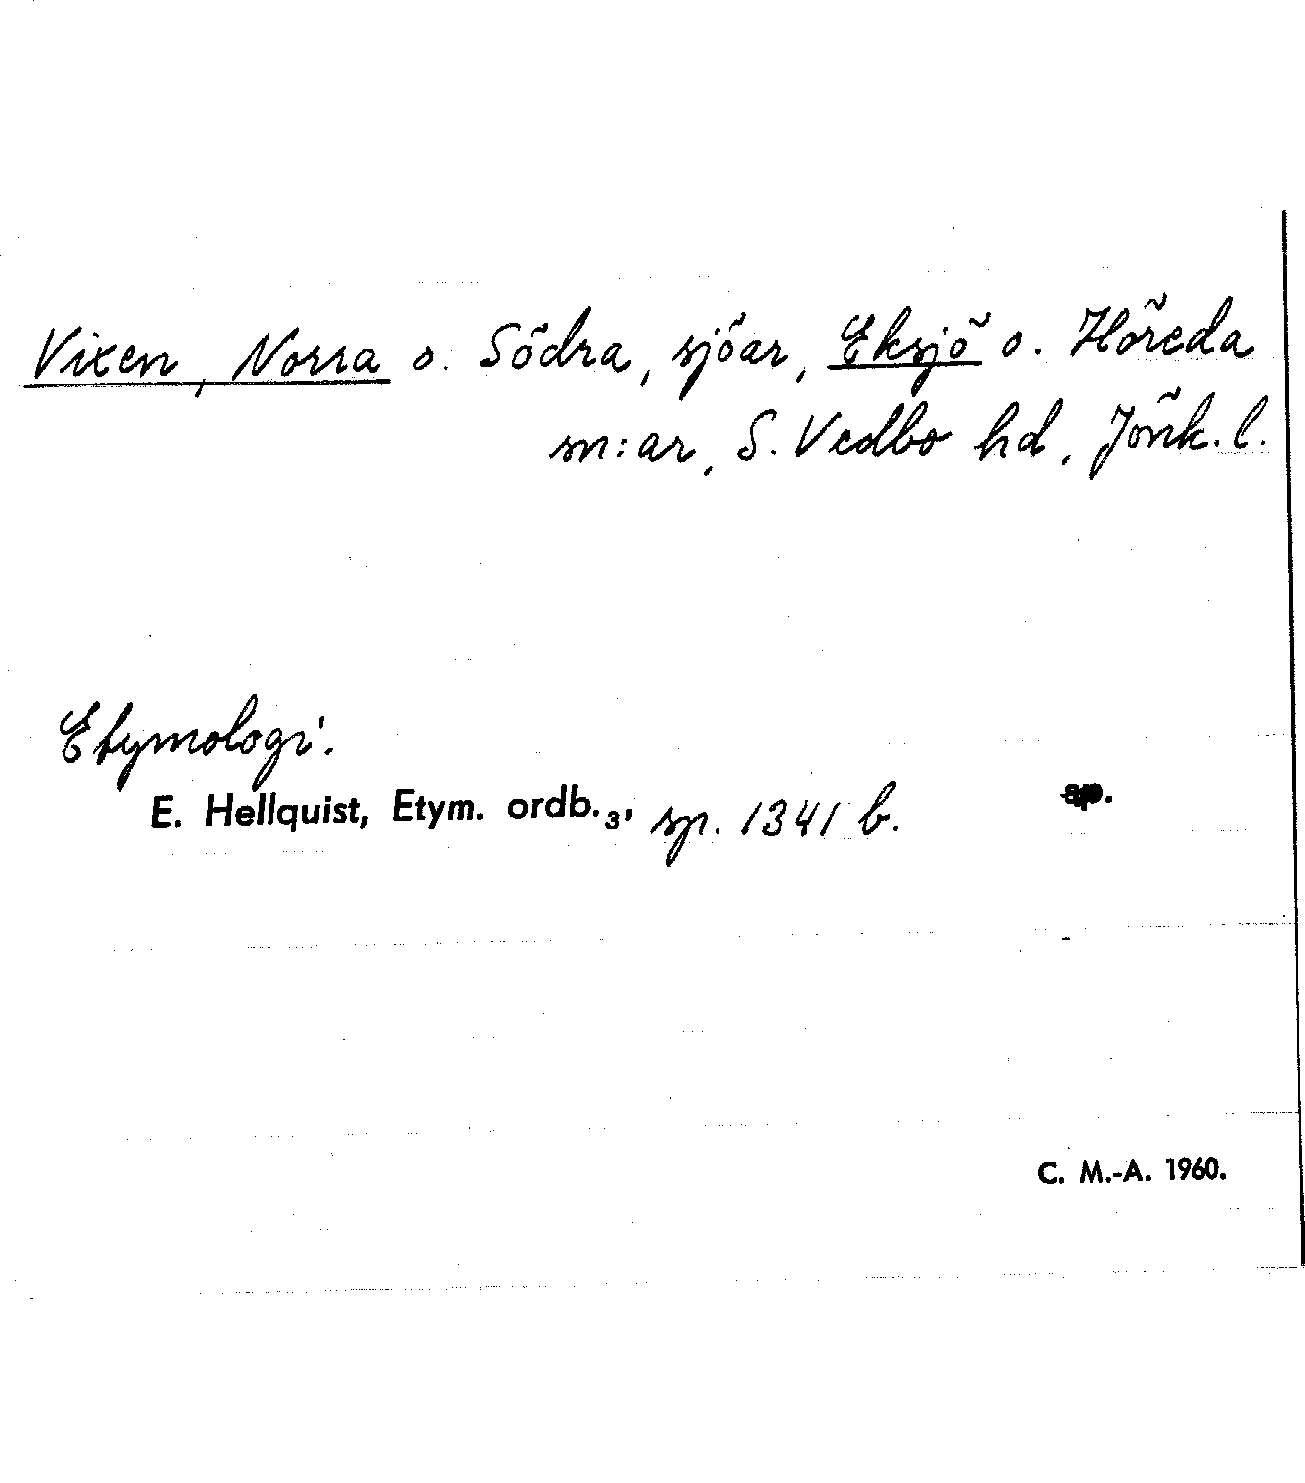 Vixen, Norra o. Södra, sjöar, Eksjö o. Höreda
sn:ar, S. Vedbo hd, Jönk. l.
Etymologi.
E. Hellquist, Etym. ordb.₃, sp. 1341 b.
C. M.-A. 1960.